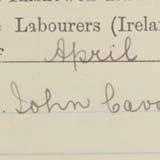 Labourers (Irela
April
John Cava